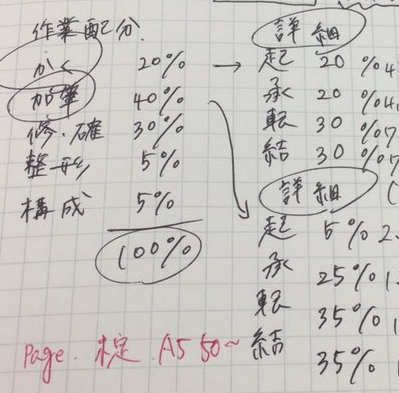 作業配分
かく 20% →
加筆 40%
修・確 30%
整形 5%
構成 5%
100%
詳細
起 20%4
承 20%4
転 30%7
結 30%7
詳細 (
起 5% 2.
承 25% 1.
転 35% 1
結 35% 1
Page. 未定. A5 50~